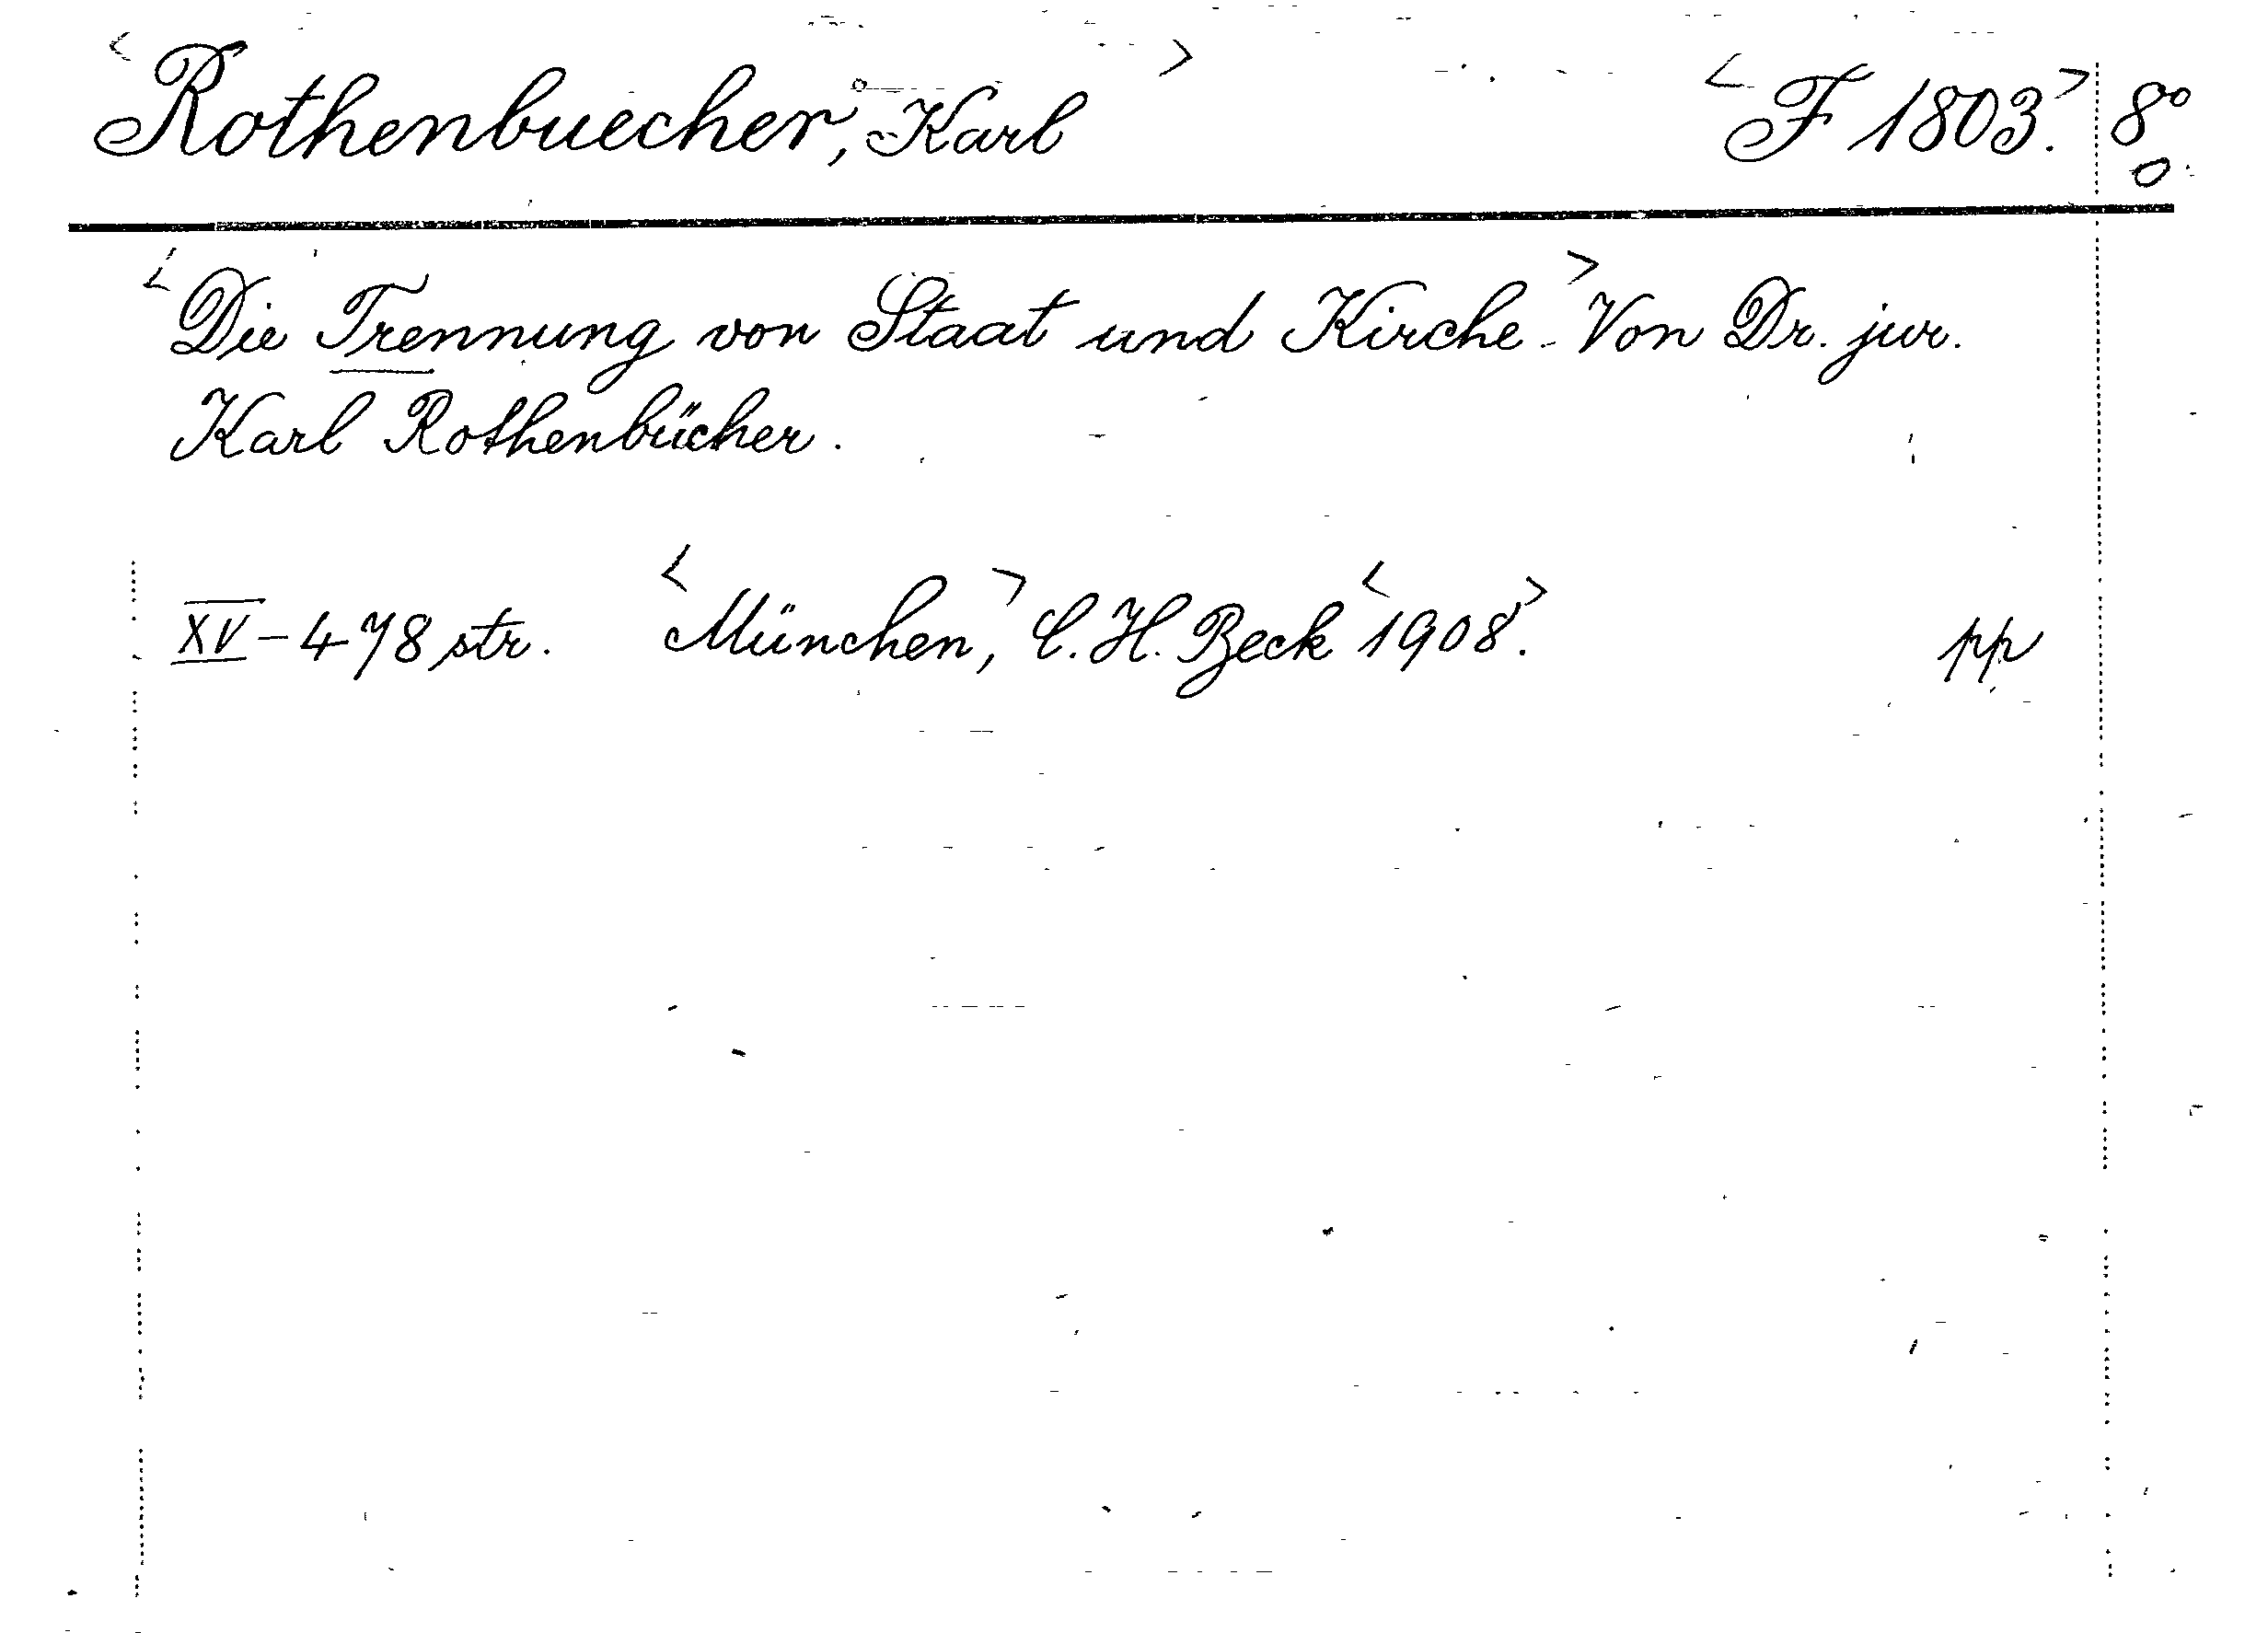 <Rothenbuecher, Karl> <F 1803.> 8°
<Die Trennung von Staat und Kirche.> Von Dr. jur.
Karl Rothenbücher.
XV - 478 str. <München,> C. H. Beck <1908>. pp